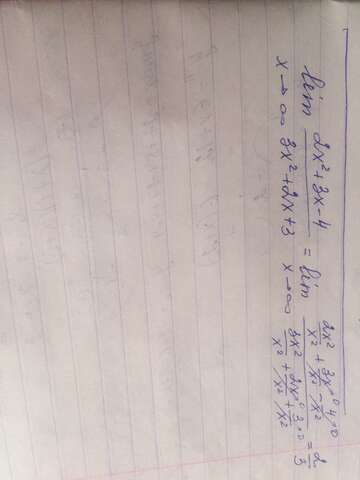 lim 2x²+3x-4 / 3x²+2x+3 = lim 2x²/x² + 3x/x² →0 - 4/x² →0 / 3x²/x² + 2x/x² →0 + 3/x² →0 = 2/3
x→∞ x→∞